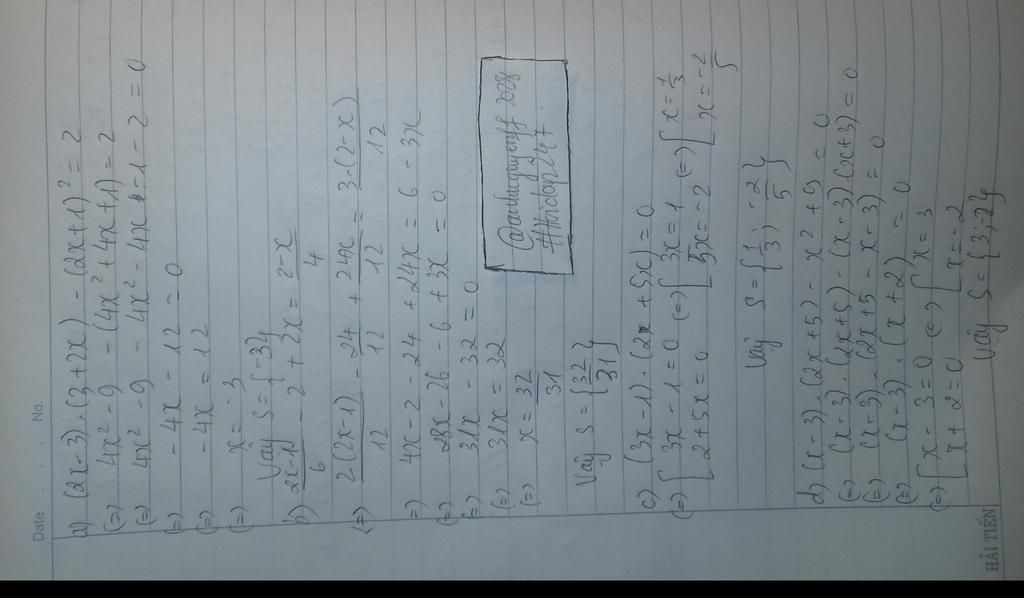 Date . . . . No.
a) (2x-3).(3+2x) - (2x+1)² = 2
(=) 4x² - 9 - (4x² + 4x + 1) = 2
(=) 4x² - 9 - 4x² - 4x - 1 - 2 = 0
(=) - 4x - 12 = 0
(=) - 4x = 12
(=) x = - 3
Vậy S = {-3}
b) (2x-1)/6 - 2 + 2x = (2-x)/4
(=) 2(2x-1)/12 - 24/12 + 24x/12 = 3.(2-x)/12
=) 4x - 2 - 24 + 24x = 6 - 3x
(=) 28x - 26 - 6 + 3x = 0
(=) 31x - 32 = 0
(=) 31x = 32
(=) x = 32/31
Vậy S = {32/31}
#Hoidap247
c) (3x-1).(2x+5x) = 0
(=) [ 3x - 1 = 0 (=) [ 3x = 1 (=) [ x = 1/3
[ 2 + 5x = 0 [ 5x = -2 [ x = -2/5
Vậy S = {1/3; -2/5}
d) (x-3).(2x+5) - x² + 9 = 0
(=) (x-3).(2x+5) - (x-3)(x+3) = 0
(=) (x-3).(2x+5 - x - 3) = 0
(=) (x-3).(x+2) = 0
(=) [ x - 3 = 0 (=) [ x = 3
[ x + 2 = 0 [ x = -2
Vậy S = {3; 2}
HẢI TIẾN